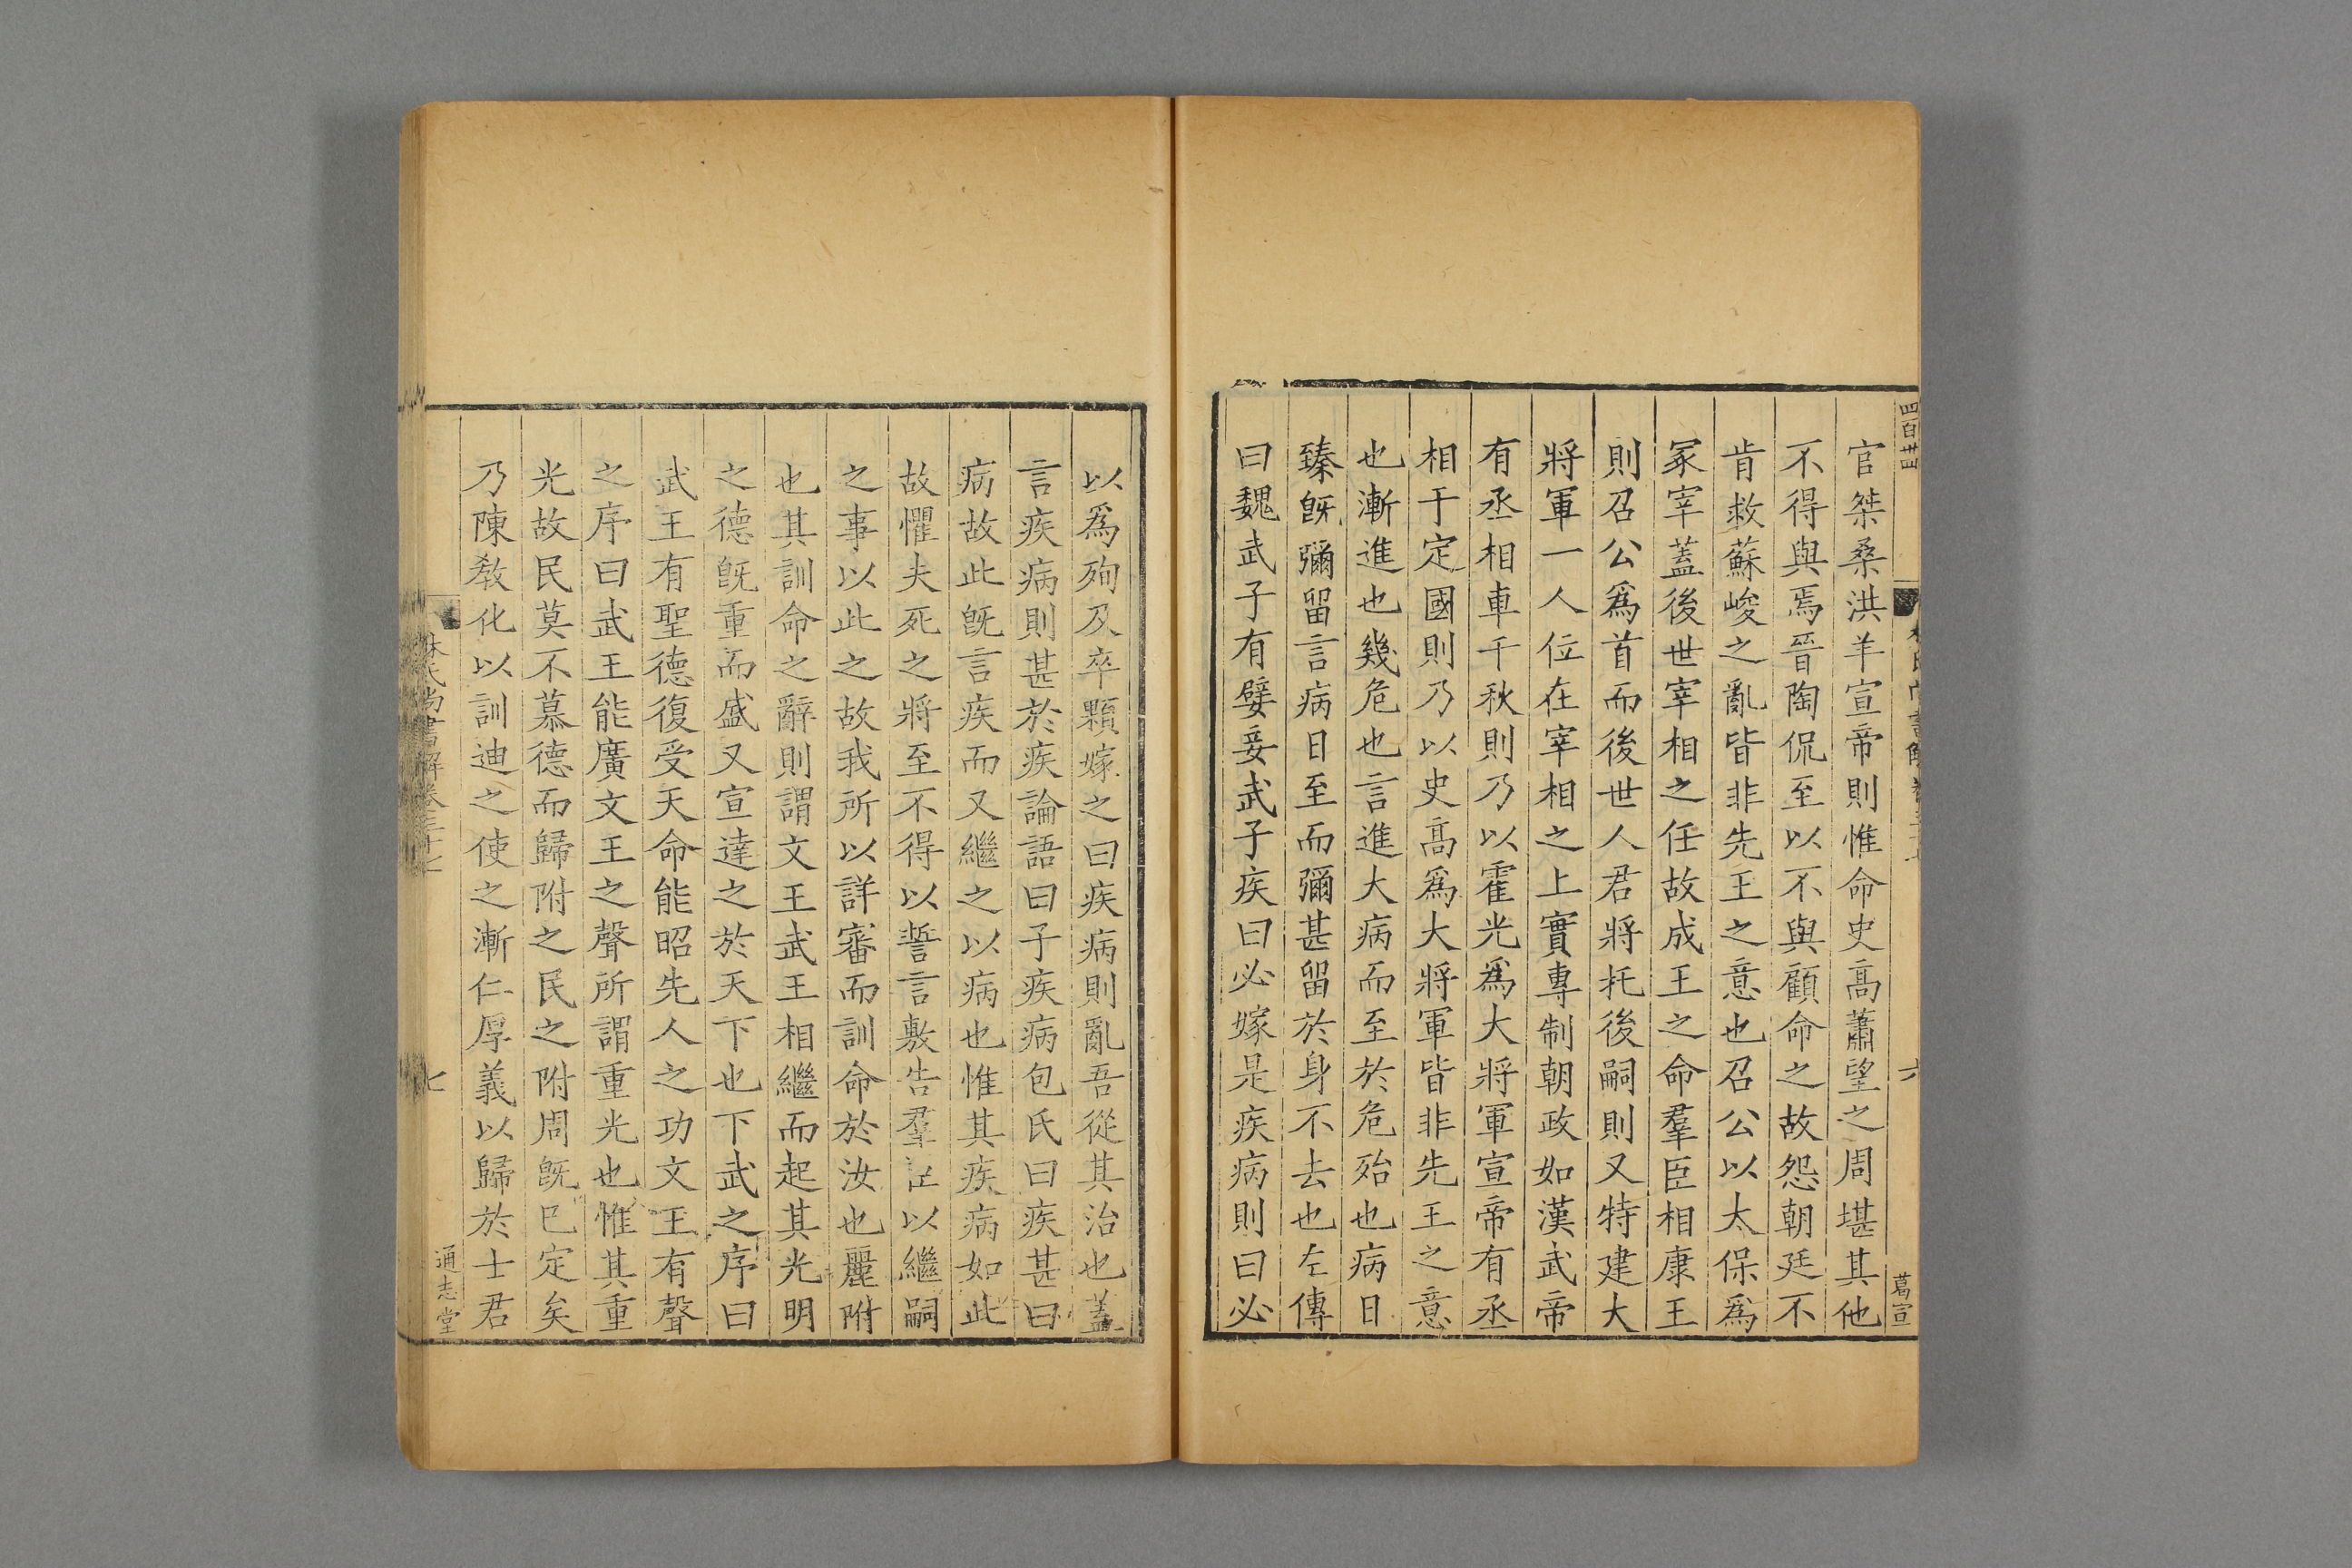 官桀桑洪羊宣帝則惟命史高蕭望之周堪其他
不得與焉晉陶侃至以不與顧命之故怨朝廷不
肯救蘇峻之亂皆非先王之意也召公以太保爲
冢宰蓋後世宰相之任故成王之命羣臣相康王
則召公爲首而後世人君將托後嗣則又特建大
將軍一人位在宰相之上實專制朝政如漢武帝
有丞相車千秋則乃以霍光爲大將軍宣帝有丞
相于定國則乃以史高爲大將軍皆非先王之意
也漸進也幾危也言進大病而至於危殆也病日
臻旣彌留言病日至而彌甚留於身不去也左傳
曰魏武子有嬖妾武子疾曰必嫁是疾病則曰必
葛宣
六
以爲殉及卒顆嫁之曰疾病則亂吾從其治也蓋
言疾病則甚於疾論語曰子疾病包氏曰疾甚曰
病故此旣言疾而又繼之以病也惟其疾病如此
故懼夫死之將至不得以誓言敷告羣臣以繼嗣
之事以此之故我所以詳審而訓命於汝也麗附
也其訓命之辭則謂文王武王相繼而起其光明
之德旣重而盛又宣達之於天下也下武之序曰
武王有聖德復受天命能昭先人之功文王有聲
之序曰武王能廣文王之聲所謂重光也惟其重
光故民莫不慕德而歸附之民之附周旣巳定矣
乃陳敎化以訓迪之使之漸仁厚義以歸於士君
林氏尚書解卷三十七
七
通志堂